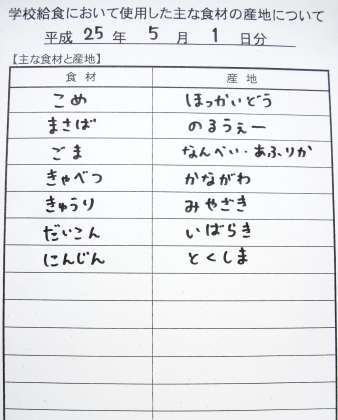 学校給食において使用した主な食材の産地について
平成 25 年 5 月 1 日分
【主な食材と産地】
食材 産地
こめ ほっかいどう
まさば のるうぇー
ごま なんべい・あふりか
きゃべつ かながわ
きゅうり みやざき
だいこん いばらき
にんじん とくしま